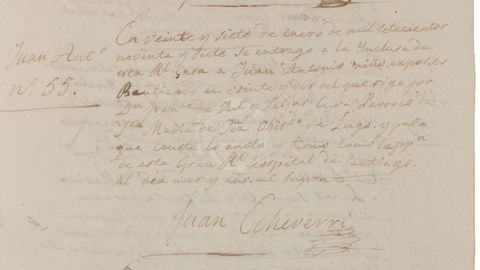 Juan Antº
nº 55.
En veinte y siete de enero de mil setecientos
nobenta y siete se entrego a la Inclusa de
esta Rl Casa a Juan Antonio niño exposito
Bautizado en veinte y dos del que rige por
Dn Franco de Cura Parroco de
Sta Maria de Obispdo de Lugo. y para
que conste lo anoto y firmo como Cappn
de este Gran Rl hospital de Santiago
al dia mes y año ut supra
Juan Echeverri